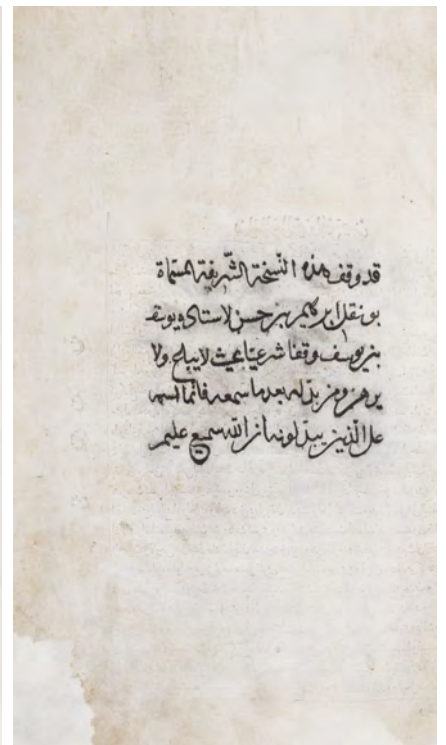 قد وقف هذه النسخة الشريفة المسماة
ابراهيم بن حسن
بن يوسف وقفا شرعيا بحيث لا يباع ولا
يرهن ومن بدله بعد ما سمعه فانما اثمه
على الذين يبدلونه ان الله سميع عليم